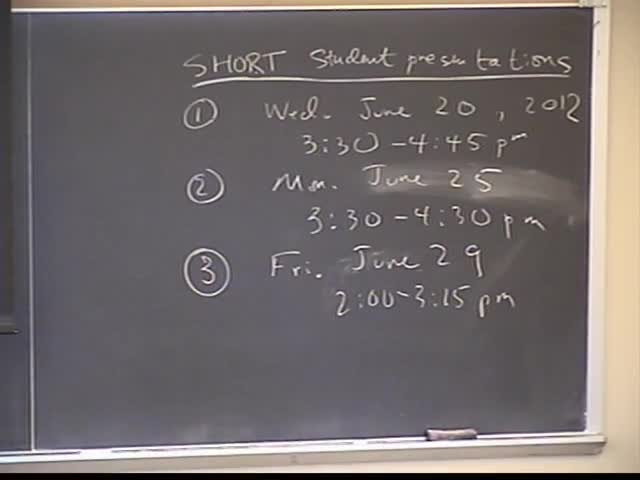 SHORT Student presentations
① Wed. June 20, 2012
3:30-4:45 pm
② Mon. June 25
3:30-4:30 pm
③ Fri. June 29
2:00-3:15 pm